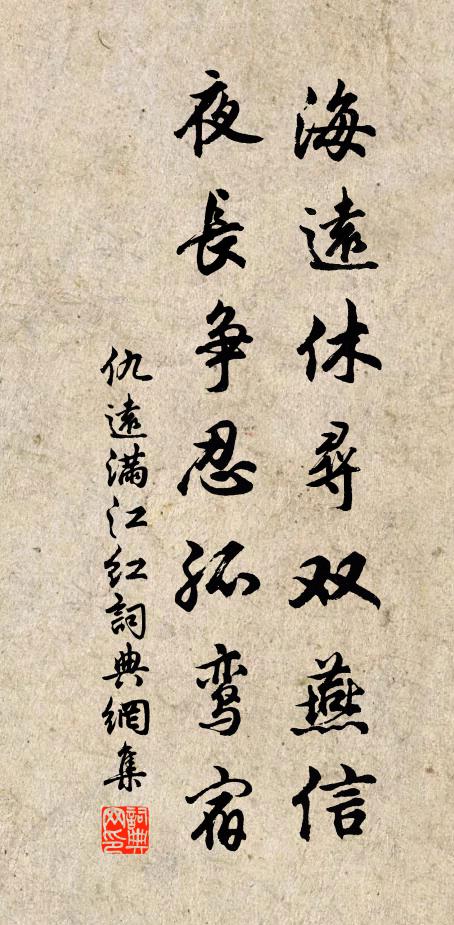 海遠休尋双燕信
夜長争忍孤鸾宿
仇遠满江红詞典網集
詞典网印